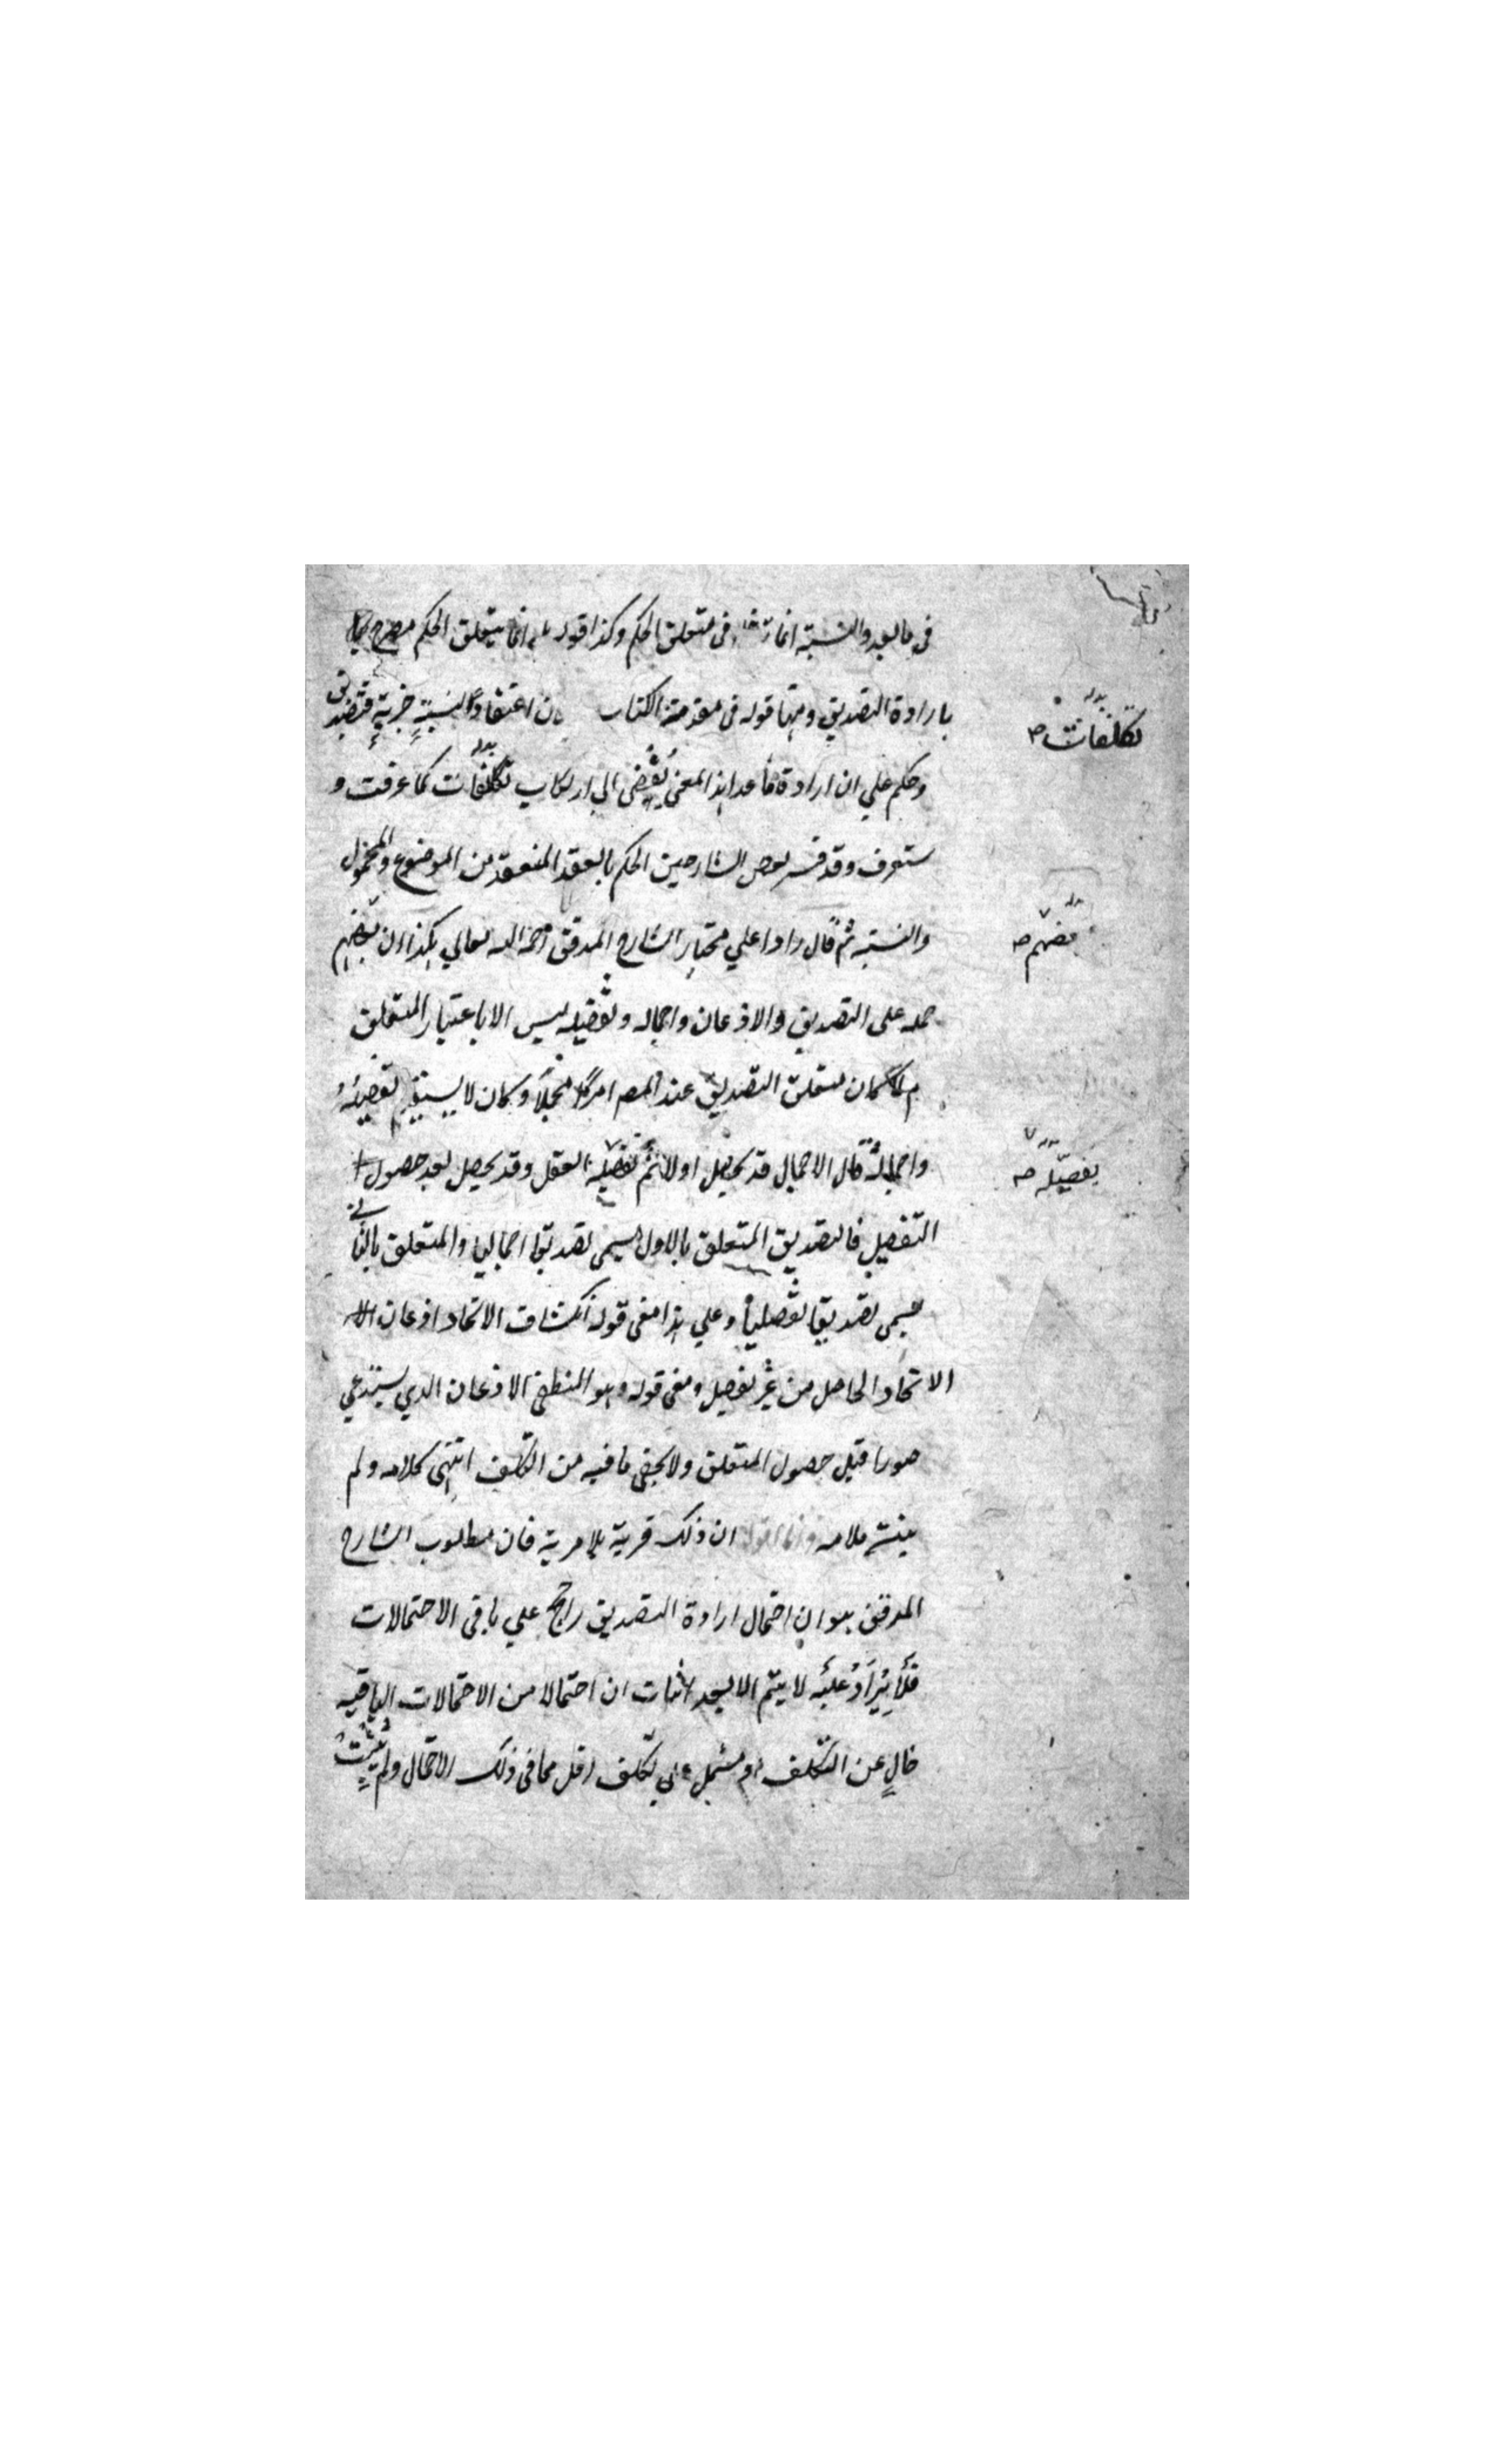 في ما بعد والنسبة انما في متعلق الحكم وكذا قوله انما يتعلق الحكم مصرح
بارادة التصديق ومنها قوله في مقدمة الكتاب ن اعتقادا لنسبة خبرية فتصديق
وحكم علي ان ارادة ما عدا هذا المعنى يفضى الى ارتكاب تكلفات كما عرفت و
ستعرف وقد فسر بعض الشارحين الحكم بالعقد المنعقد من الموضوع والمحمول
والنسبة ثم قال رادا علي مختار الشارح المدقق رحمه الله تعالي هكذا ان بعضهم
حمله على التصديق والاذعان واجماله وتفصيله ليس الا باعتبار المتعلق
لما كان متعلق التصديق عند المصـ امرا مجملا وكان لا يستقيم تفصيله
واجماله قال الاجمال قد يحصل اولا ثم تفصيله العقل وقد يحصل بعد حصول
التفصيل فالتصديق المتعلق بالاول يسمى تصديقا اجماليا والمتعلق بالثاني
يسمى تصديقا تفصليا وعلي هذا معنى قوله انكشاف الاتحاد اذعان
الاتحاد الحاصل من غير تفصيل ومعنى قوله وهو المنطقي الاذعان الذي يستدعي
صورا قبل حصول المتعلق ولا يخفى ما فيه من التكلف انتهى كلامه ولم
ان ذلك فرية بلا مرية فان مطلوب الشارح
المدقق هو ان احتمال ارادة التصديق راجح علي باقي الاحتمالات
فلا يراد عليه لا يتم الا بعد اثبات ان احتمالا من الاحتمالات الباقيه
خال عن التكلف او مشتمل على تكلف اقل مما في ذلك الاحتمال ولم يثبت
تكلفات صـ
بعضهم صـ
تفصيله صـ